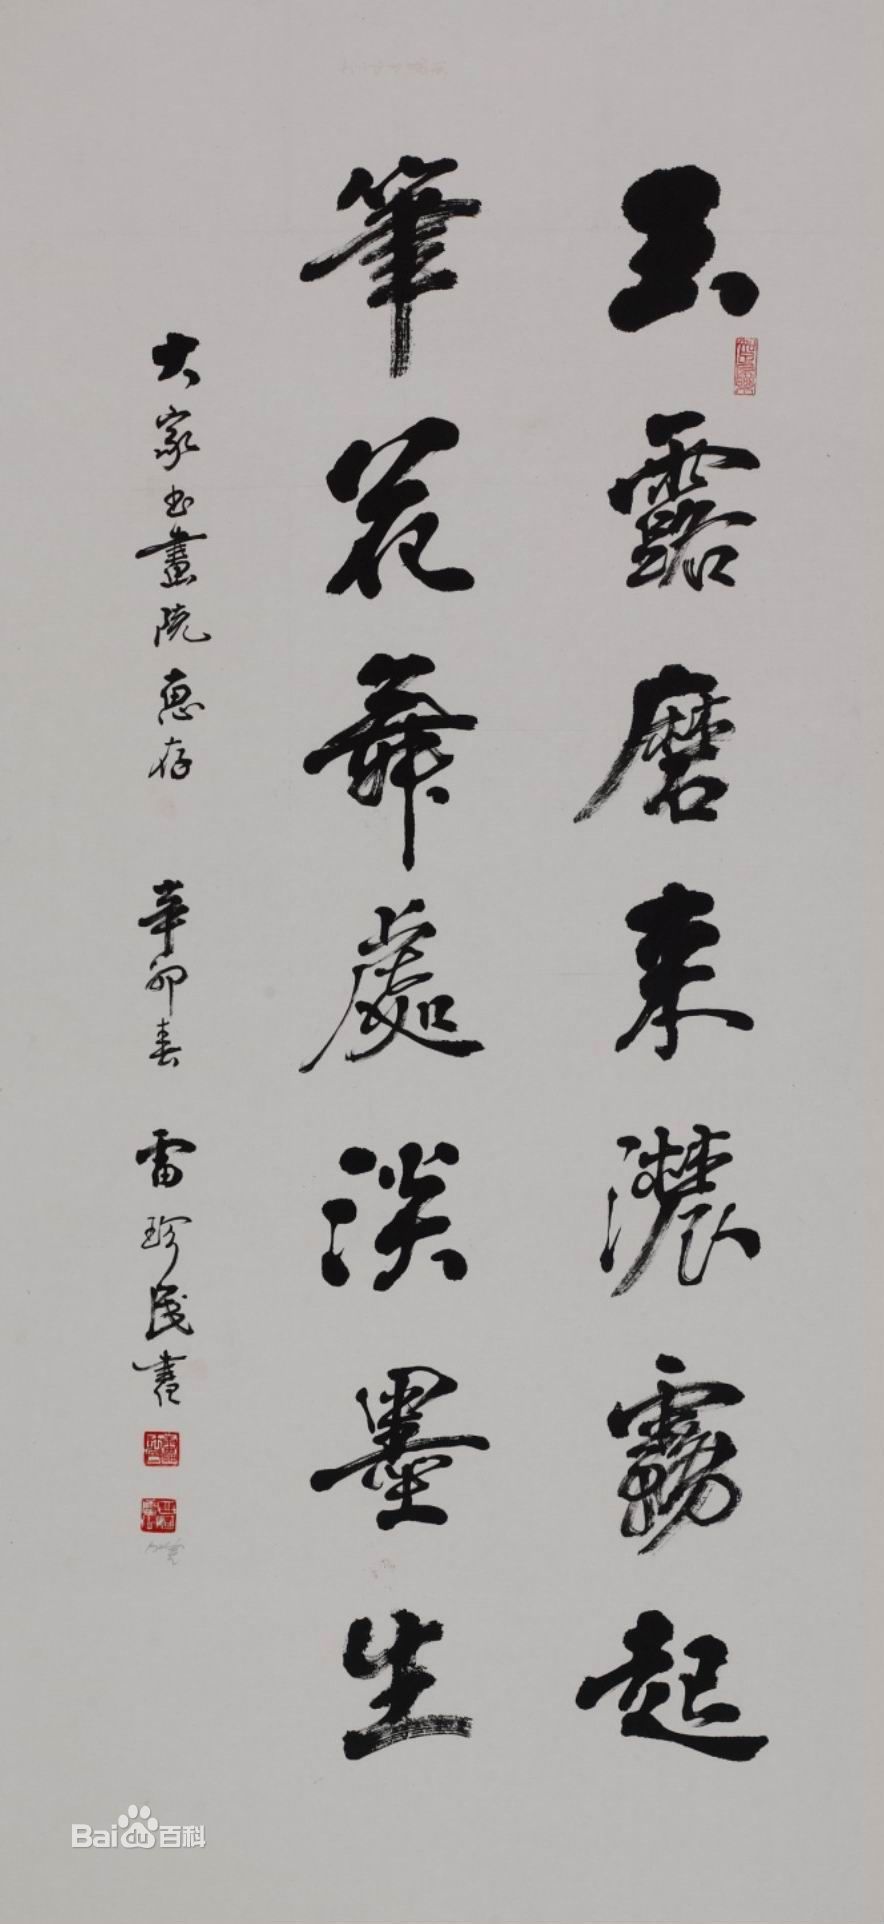 玉露磨来濃霧起
筆花舞處淡墨生
大家书畫院惠存 辛卯春 雷珍民書
Baidu百科